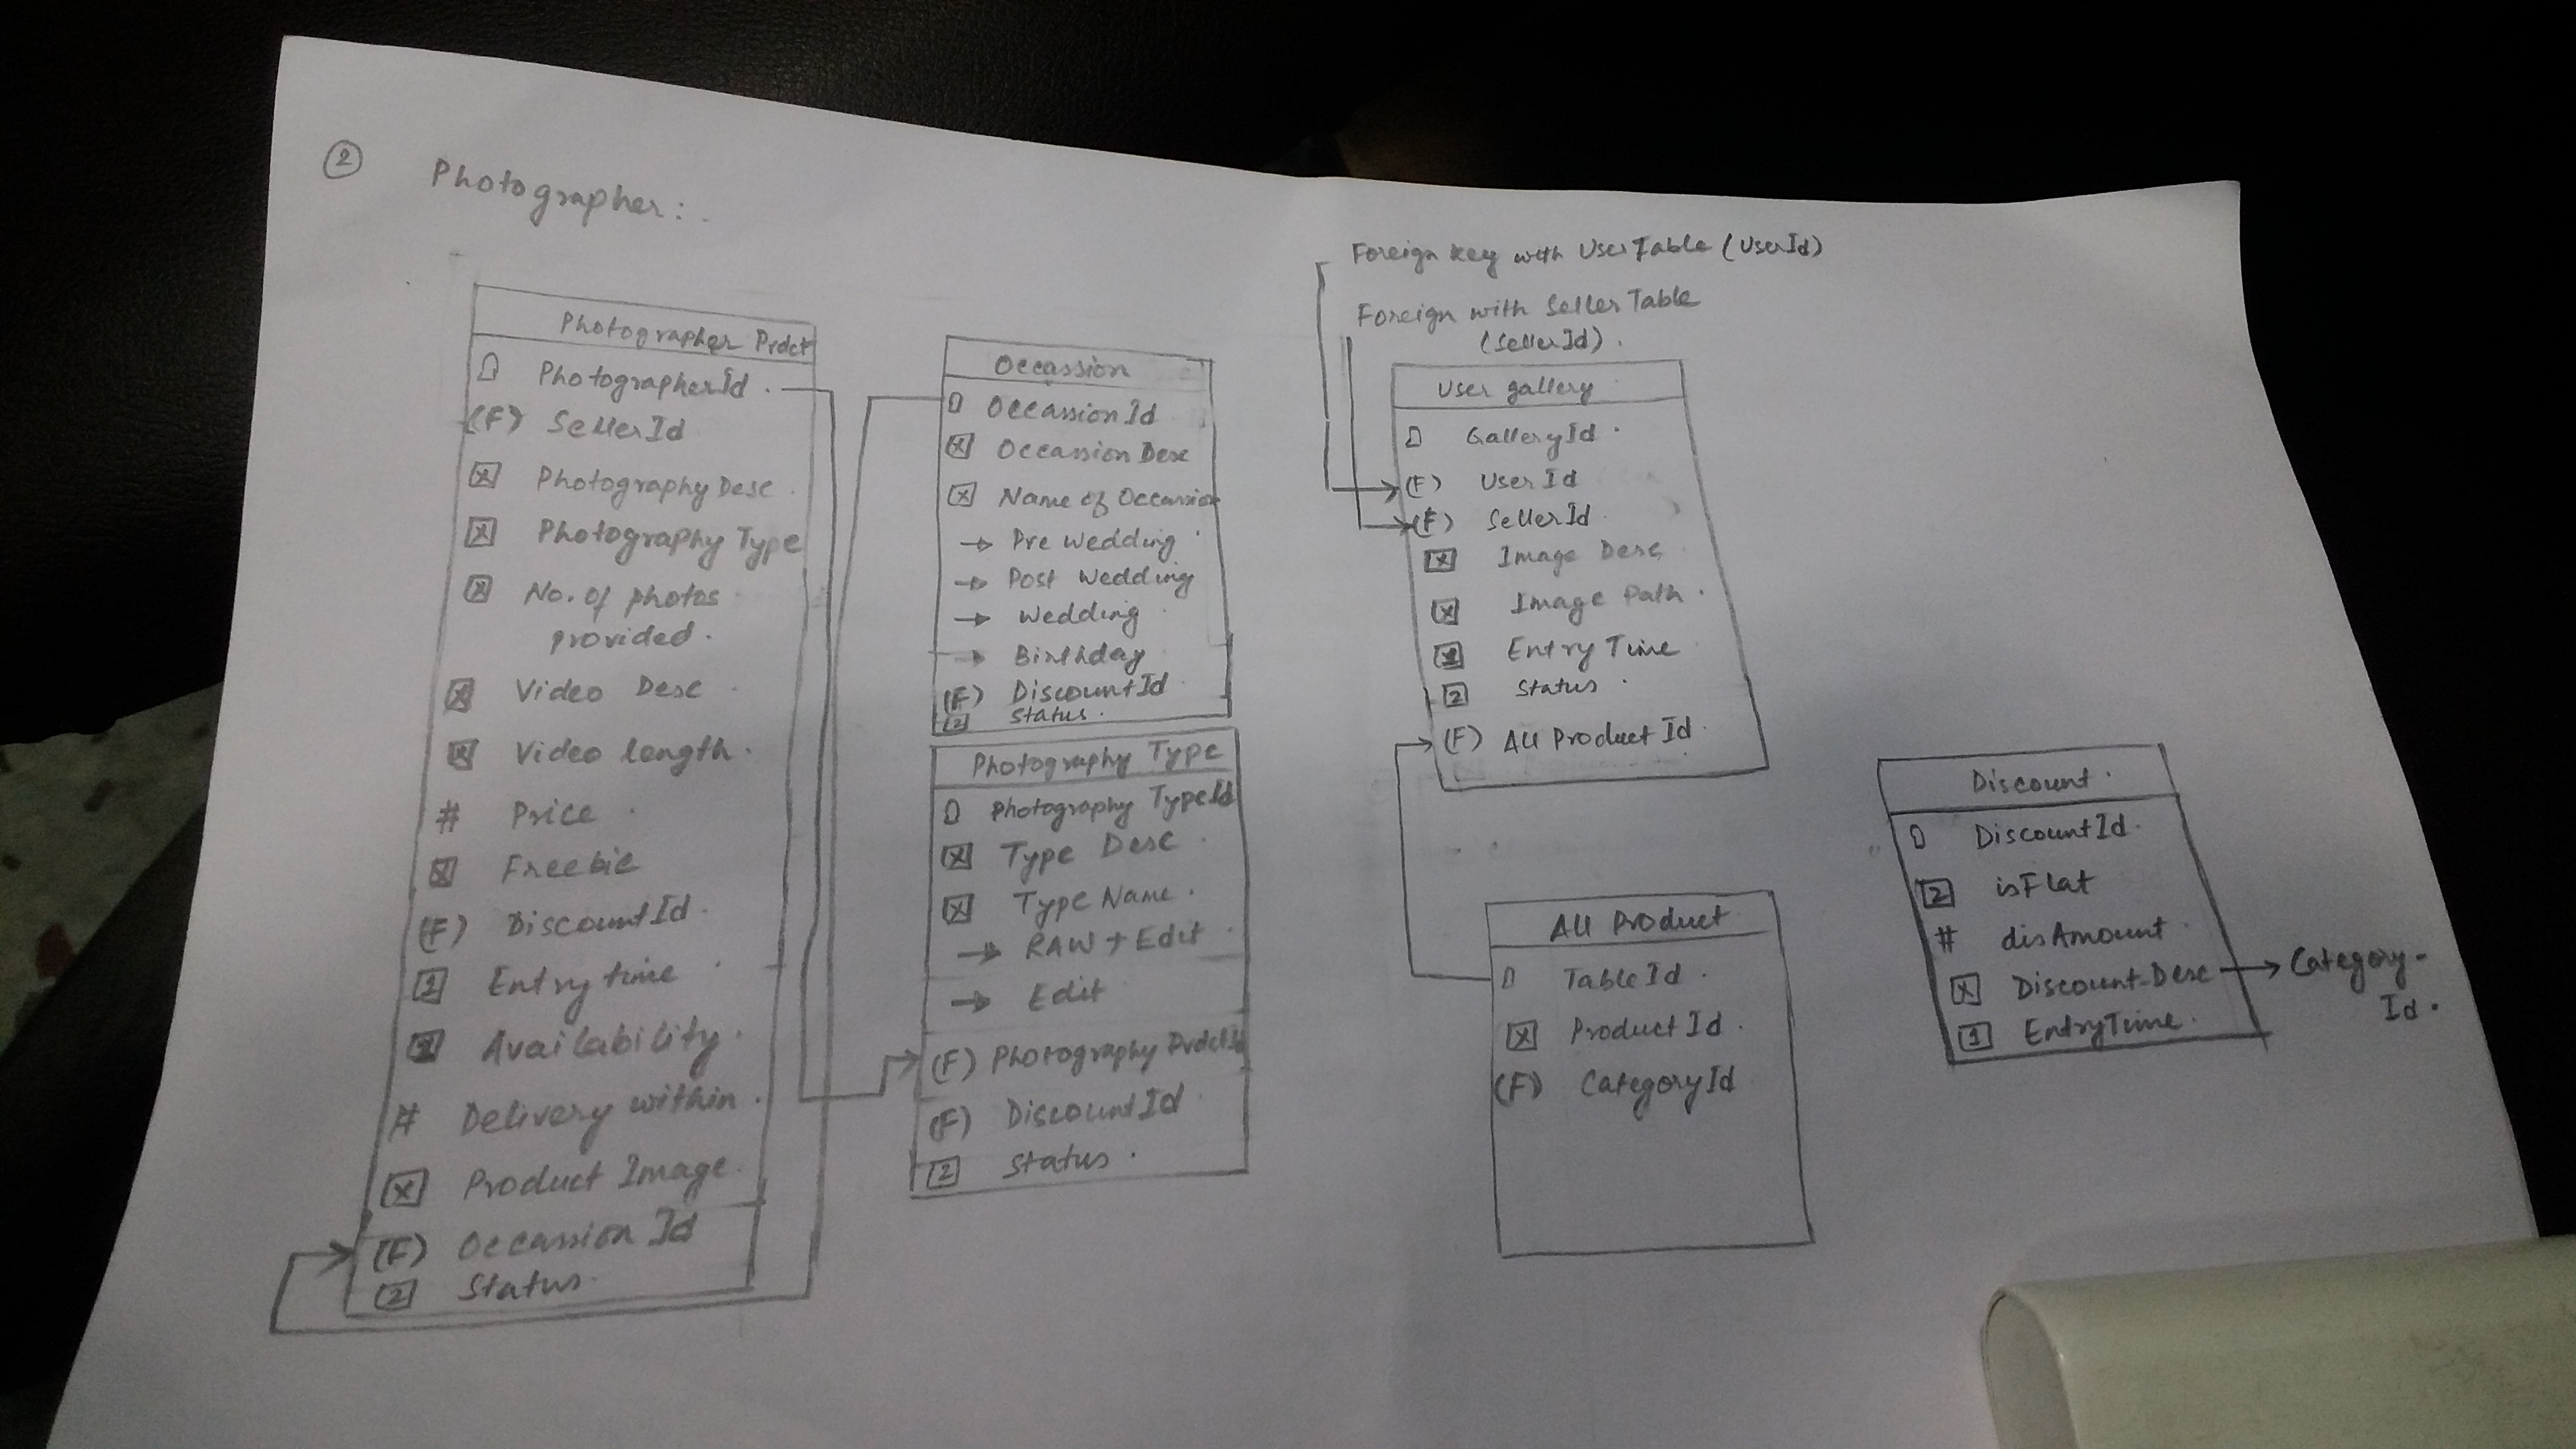 2
Photographer:
Photographer Prdct
PhotographerId
(F) SellerId
x Photography Desc
x Photography Type
x No. of photos
provided.
x Video Desc
x Video length
# Price
x Freebie
(F) DiscountId
1 Entry time
2 Availability
# Delivery within
x Product Image
(F) Occassion Id
2 Status
Occassion
OccassionId
x Occassion Desc
x Name of Occassion
→ Pre Wedding
→ Post Wedding
→ Wedding
→ Birthday
(F) DiscountId
2 Status
Photography Type
Photography TypeId
x Type Desc
x Type Name
→ RAW + Edit
→ Edit
(F) Photography PrdctId
(F) DiscountId
2 Status
Foreign key with User Table (UserId)
Foreign with Seller Table
(SellerId).
User gallery
GalleryId
(F) UserId
(F) SellerId
x Image Desc
x Image Path
1 Entry Time
2 Status
(F) All Product Id
All Product
TableId
x Product Id
(F) CategoryId
Discount
DiscountId
2 isFlat
# disAmount
x Discount-Desc → Category-
Id.
1 EntryTime